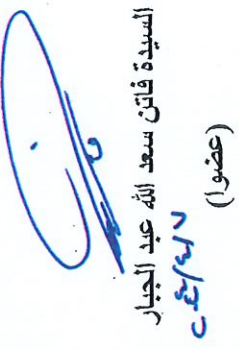 السيدة فاتن سعد الله عبد الجبار
٢٤/٤/٧
(عضوا)